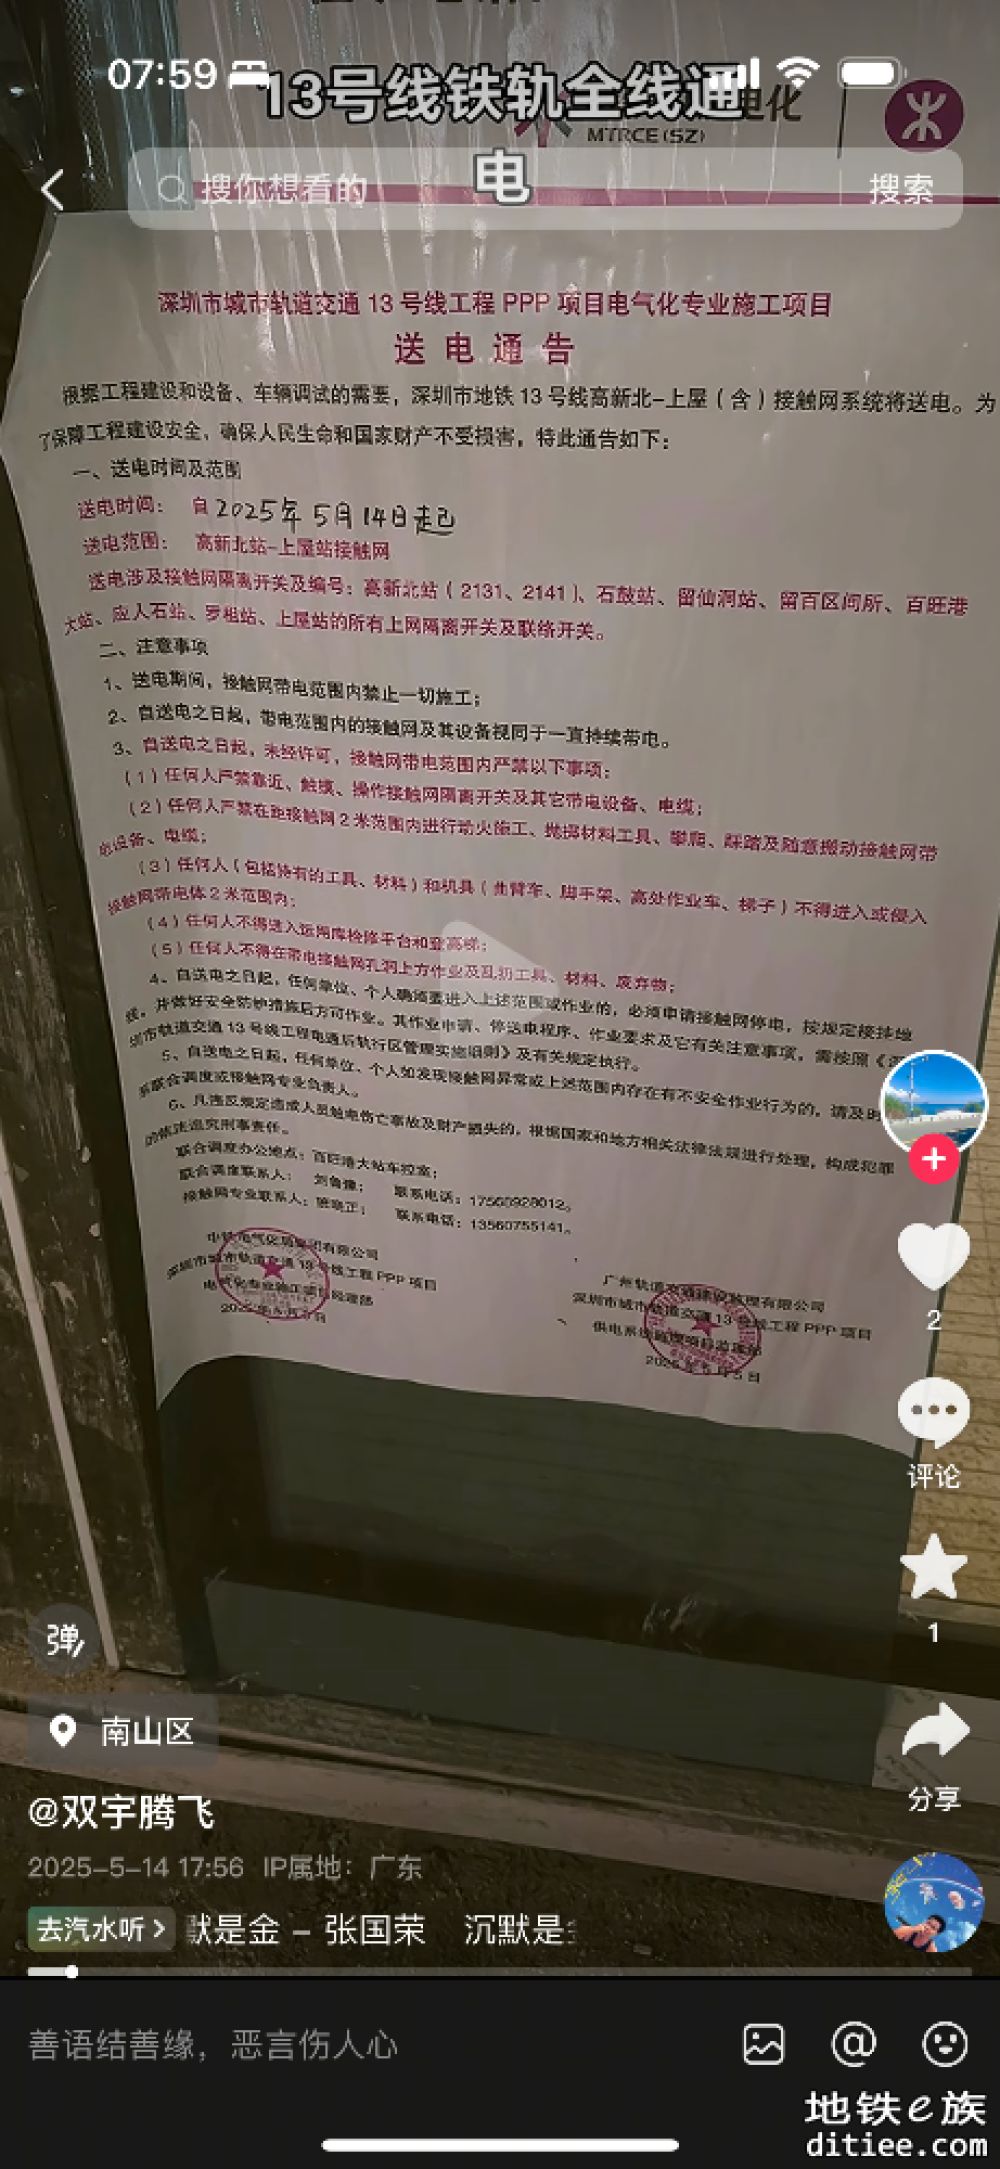 07:59
13号线铁轨全线通
电
电化
MTRCE(SZ)
搜你想看的
搜索
深圳市城市轨道交通 13 号线工程 PPP 项目电气化专业施工项目
送电通告
根据工程建设和设备、车辆调试的需要，深圳市地铁 13 号线高新北-上屋（含）接触网系统将送电。为
了保障工程建设安全，确保人民生命和国家财产不受损害，特此通告如下：
一、送电时间及范围
送电时间： 自 2025年 5月 14日起
送电范围： 高新北站-上屋站接触网
送电涉及接触网隔离开关及编号：高新北站（2131、2141）、石鼓站、留仙洞站、留百区间所、百旺港
大站、应人石站、罗租站、上屋站的所有上网隔离开关及联络开关。
二、注意事项
1、送电期间，接触网带电范围内禁止一切施工；
2、自送电之日起，带电范围内的接触网及其设备视同于一直持续带电。
3、自送电之日起，未经许可，接触网带电范围内严禁以下事项：
（1）任何人严禁靠近、触摸、操作接触网隔离开关及其它带电设备、电缆；
（2）任何人严禁在距接触网 2 米范围内进行动火施工、抛掷材料工具、攀爬、踩踏及随意搬动接触网带
电设备、电缆；
（3）任何人（包括持有的工具、材料）和机具（曲臂车、脚手架、高处作业车、梯子）不得进入或侵入
接触网带电体 2 米范围内；
（4）任何人不得进入运用库检修平台和登高梯；
（5）任何人不得在带电接触网孔洞上方作业及乱扔工具、材料、废弃物；
4、自送电之日起，任何单位、个人确须要进入上述范围或作业的，必须申请接触网停电，按规定接挂地
线，并做好安全防护措施后方可作业。其作业申请、停送电程序、作业要求及它有关注意事项，需按照《深
圳市轨道交通 13 号线工程电通后轨行区管理实施细则》及有关规定执行。
5、自送电之日起，任何单位、个人如发现接触网异常或上述范围内存在有不安全作业行为的，请及时
系联合调度或接触网专业负责人。
6、凡违反规定造成人员触电伤亡事故及财产损失的，根据国家和地方相关法律法规进行处理，构成犯罪
的依法追究刑事责任。
联合调度办公地点：百旺港大站车控室；
联合调度联系人： 刘鲁豫； 联系电话：17560928012。
接触网专业联系人： 联系电话：13560755141。
中铁电气化局集团有限公司
深圳市城市轨道交通 13 号线工程 PPP 项目
电气化专业施工项目经理部
广州轨道交通建设监理有限公司
深圳市城市轨道交通 13 号线工程 PPP 项目
供电系统监理项目监理部
2025 年 5 月 5 日
2
评论
1
分享
弹
南山区
@双宇腾飞
2025-5-14 17:56 IP属地：广东
去汽水听 > 默是金 - 张国荣 沉默是金
善语结善缘，恶言伤人心
地铁e族
ditiee.com